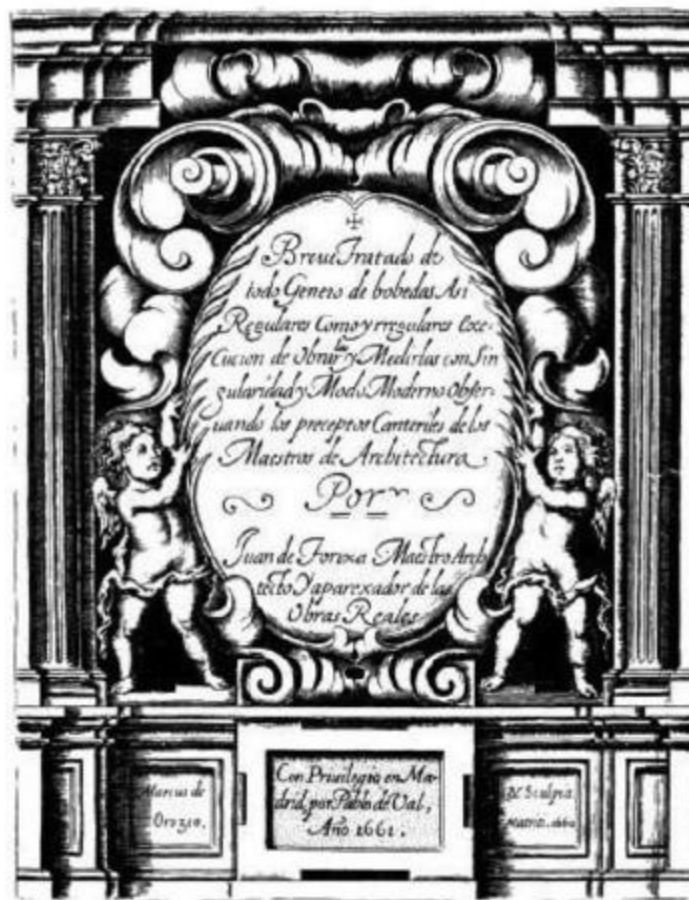 Breue Tratado de
todo Genero de bobedas Asi
Regulares Como yrregulares Exe-
cucion de Obrar las y Medirlas con Sin
gularidad y Modo Moderno Obser-
uando los preceptos Canteriles de los
Maestros de Architectura.
Por
Juan de Torixa Maestro Archi
tecto Y aparexador de las
Obras Reales
Marcus de
Orozco.
Con Priuilegio en Ma-
drid, por Pablo de Val,
Año 1661.
Sculpsit
Matriti. 1660